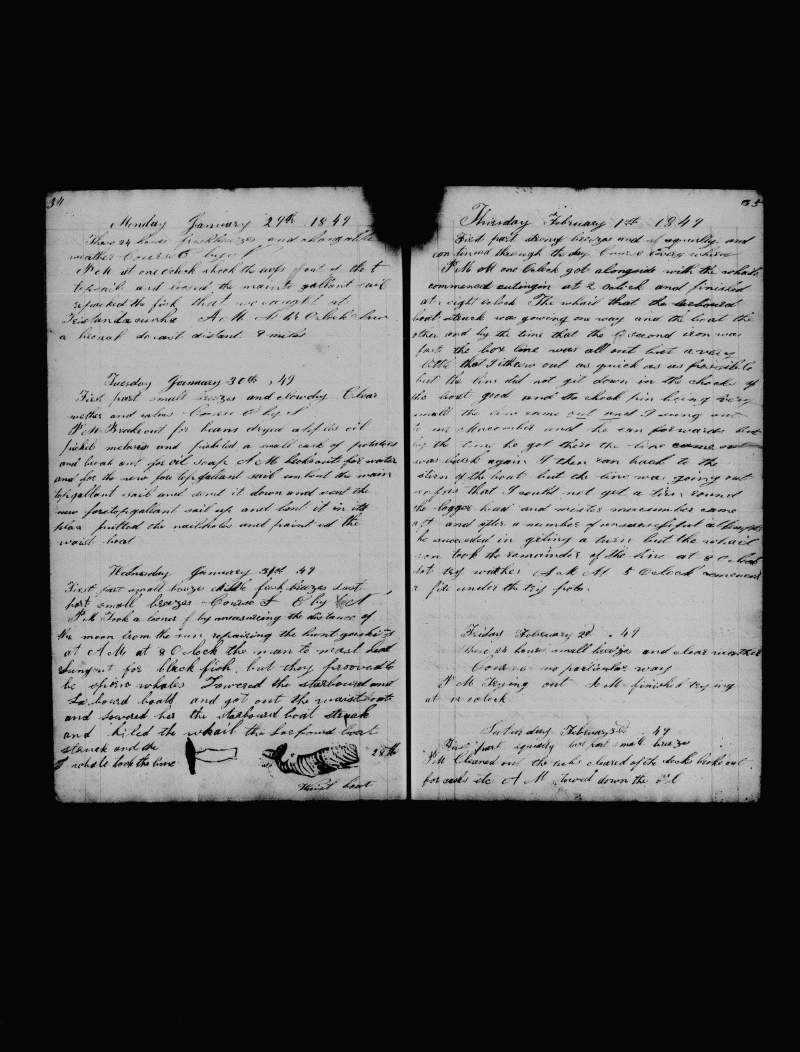 34
Monday January 29th 1849
These 24 hours fresh breezes and changable
weather Course E by
P M at one Oclock shook the reefs out of the
topsail and loosed the main to gallant sail
repacked the fish that we caught at
Tristandacunha A M At Oclock saw
a breach distant 8 miles
Tuesday January 30th , 49
First part small breezes and clowdy Clear
wether and calms Course E by S
P M Brake out for beans dryed oil
and pickled a small cask of potatoes
and break out for oil soap A M broke out for water
and for the new fore topgallant sail unbent the main
topgallant sail and send it down and sent the
new foretopgallant sail up and bent it in its
place puttied the nailholes and painted the
waist boat
Wednesday January 31st 49
First part small breezes Middle fresh breezes Last
part small breezes Course E by
P M Took a looner by measureing the distance of
the moon from the sun repairing the
at A M at 8 O clock the man to mast head
sungout for black fish but they prooved to
be sperm whales Lowered the starboard and
Larboard boats and got out the waist boat
and lowered her the starboard boat struck
and kiled the whail the larboard boat
struck and the
whale took the line
28
Waist boat
35
Thursday February 1st 1849
First part strong breezes and squally and
continued through the day Course Every where
P M At one Oclock got alongside with the whale
commenced cutingin at 2 oclock and finished
at eight oclock The whail that the larboard
boat struck was gowing one way and the boat the
other and by the time that the second iron was
fast the box line was all out but a very
little that I threw out as quick as as possible
but the line did not git down in the chocks of
the boat good and the chock pin being very
small the line came out and I sung out
to mr Macomber and he ran forwards but
by the time he got there the line came
was back again I then ran back to the
stern of the boat but the line was going out
so fast that I could not get a turn round
the logger head and mister macumber came
aft and after a number of unsucessful attempts
he succeded in giting a turn but the whail
soon took the remainder of the line at 8 Oclock
lost wether A M At 5 Oclock comenced
a fire under the try pots
Friday February 2d , 49
These 24 hours small breezes and clear weather
Course no particular way
P M Trying out A M finished trying
at oclock
Saturday February 3d 49
First part squaly last part small breeze
P M Cleaned out the cleared of the decks broke out
for casks etc A M stowed down the oil